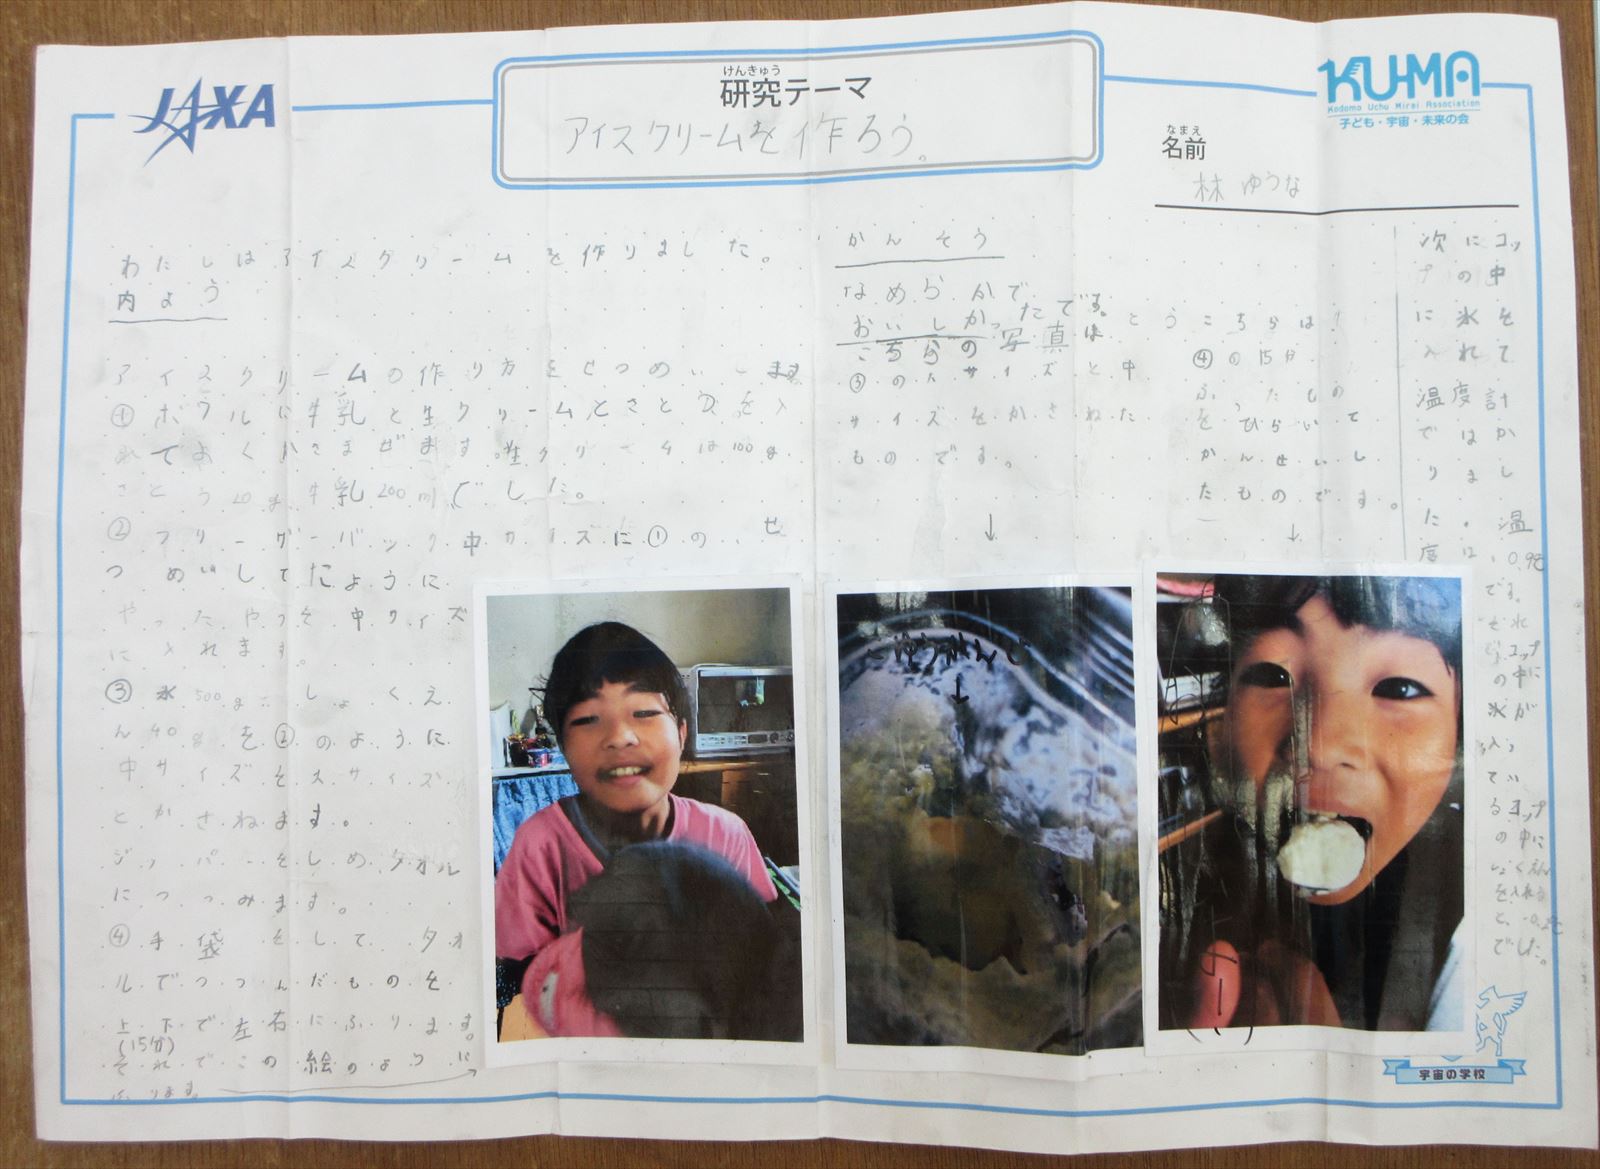 JAXA
けんきゅう
研究テーマ
アイスクリームを作ろう。
KU-MA
Kodomo Uchu Mirai Association
子ども・宇宙・未来の会
なまえ
名前
林 ゆうな
わたしはアイスクリームを作りました。
内よう
アイスクリームの作り方をせつめいします
① ボウルに牛乳と生クリームとさとうを入
れてよくかきまぜます。生クリームは100g
さとう20g、牛乳200mlでした。
② フリーザーバック中サイズに①のせ
つめいしてたように
やったやつを中サイズ
に入れます。
③ 氷500g しょくえ
ん40gを②のように
中サイズを大サイズ
とかさねます。
ジッパーをしめタオル
につつみます。
④ 手袋をしてタオ
ルでつつんだものを
上下で左右にふります。
(15分)
それでこの絵のように
かんそう
なめらかで
おいしかったです。
こちらの写真は
③の大サイズと中
サイズをかさねた
ものです。
↓
こちらは
④の15分
ふったもの
をひらいて
かんせいし
たものです。
↓
次にコッ
プの中
に氷を
入れて
温度計
ではか
りまし
た。温
度は
0.9℃
です。
コップ
の中に
氷が
入っ
てい
るコップ
の中に
しょくえん
を入れる
と、-0.2℃
でした。
宇宙の学校